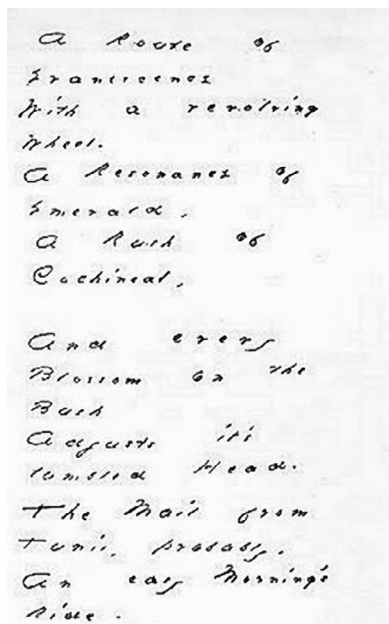 A Route of
Evanescence
With a revolving
Wheel.
A Resonance of
Emerald.
A Rush of
Cochineal.
And every
Blossom on the
Bush
Adjusts it's
tumbled Head.
The Mail from
Tunis, probably,
An easy Morning's
Ride.